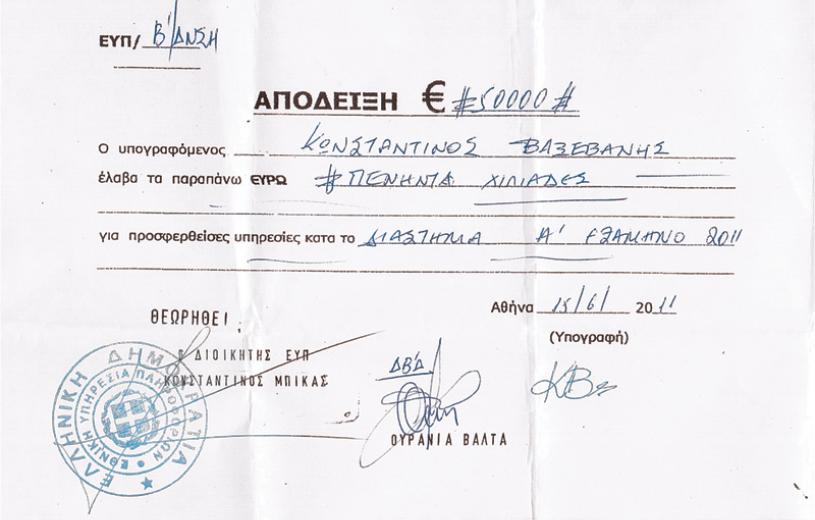 ΕΥΠ/ Β'/ΔΝΣΗ
ΑΠΟΔΕΙΞΗ € #50000#
Ο υπογραφόμενος ΚΩΝΣΤΑΝΤΙΝΟΣ ΒΑΞΕΒΑΝΗΣ
έλαβα τα παραπάνω ΕΥΡΩ # ΠΕΝΗΝΤΑ ΧΙΛΙΑΔΕΣ
για προσφερθείσες υπηρεσίες κατα το ΔΙΑΣΤΗΜΑ Α' ΕΞΑΜΗΝΟ 2011
Αθήνα 15/6/ 2011
(Υπογραφή)
ΘΕΩΡΗΘΕΙ ;
Ο ΔΙΟΙΚΗΤΗΣ ΕΥΠ
ΚΩΝΣΤΑΝΤΙΝΟΣ ΜΠΙΚΑΣ
ΔΒ'Δ
ΟΥΡΑΝΙΑ ΒΑΛΤΑ
ΚΒ
ΕΛΛΗΝΙΚΗ ΔΗΜΟΚΡΑΤΙΑ
ΕΘΝΙΚΗ ΥΠΗΡΕΣΙΑ ΠΛΗΡΟΦΟΡΙΩΝ